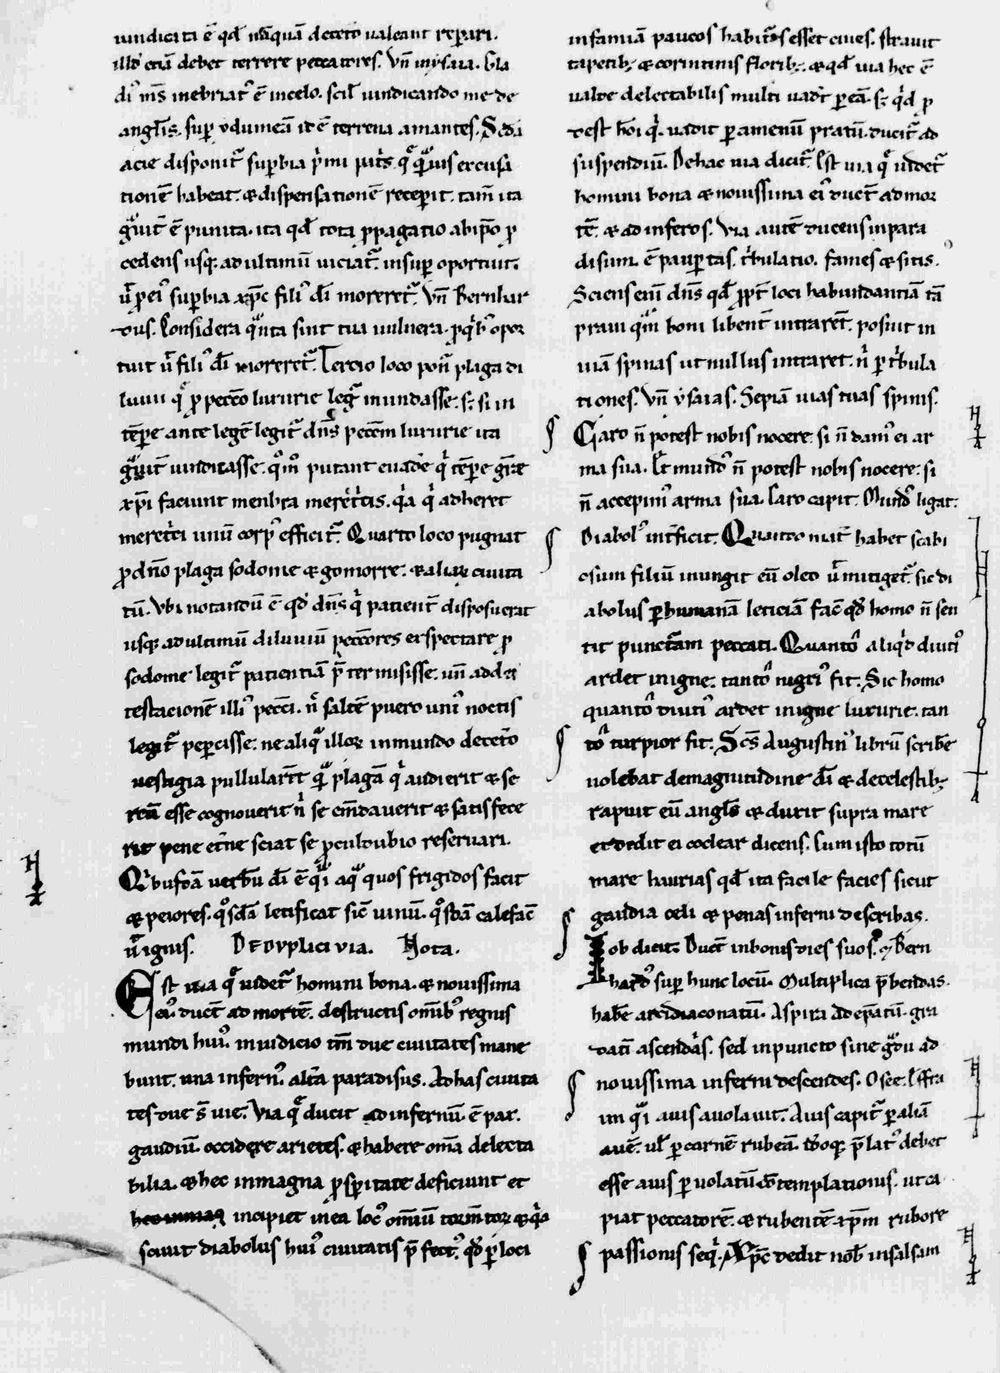 uindicata ē qđ nūquā deceto ualeant repari.
illđ etiā debet terrere peccatores. Vn̄ in ysaia. Gla
di᷒ m̄s inebriat᷒ ē in celo. scil᷒ uindicando me de
angl̄is. sup ydumeā id ē terrena amantes. Sed
acie disponit᷒ supbia p̄mi
tionē habeat. ⁊ dispensationē recepit. tam̄ ita
g̊uit᷒ ē punita. ita qđ tota ꝓpagatio ab ip̄o ꝓ
cedens usq; ad ultimū uiciat᷒. insup oportuit.
supbia xp̄c fili᷒ dī moreret᷒. Vn̄ Bernhar
dus. Considera q̊nta sint tua uulnera. ꝓ qⁱb᷒ opor
tuit ū fili᷒ dī moreret᷒. Tercio loco pon̄ plaga di
luuii q̄ ꝓ peccō luxurie leg᷒ inundasse. s; si in
tēpe ante legē legit᷒ dn̄s pecc̄m luxurie ita
g̊uit᷒ uindicasse. qūo putant euadē qⁱ tēpe gr̄e
xp̄i faciunt menbra meret̄cis. qⁱa qⁱ adheret
meret̄ci unū corp᷒ efficit᷒. Quarto loco pugnat
ꝓ dn̄o plaga sodome ⁊ gomorre. ⁊ aliaꝝ ciuita
tū. Vbi notandū ē qđ dn̄s qⁱ patient᷒ disposuerat
usq; ad ultimū diluuiū pecc̄ores exspectare ꝓ
sodome legit᷒ patientiā p̄termisisse. un̄ ad
testacionē illi᷒ pecc̄i. n̄ saltē puero uni᷒ noctis
legit᷒ pepcisse. ne aliq̊ illoꝝ in mundo decetō
uestigia pullularēt q̊ plagā qⁱ audierit ⁊ se
reū esse cognouerit nⁱ se em̄dauerit ⁊ satisfece
rit pene et̄ne sciat se ꝓculdubio reseruari.
Qⁱbusdā uerbū dī ē q̊i aq̊ quos frigidos facit
⁊ peiores. qⁱsdā letificat sic̄ uinū. qⁱsdā calefac̄
ignis. De duplici via. Nota.
Est uia q̄ uidet᷒ homini bona. ⁊ nouissima
ei᷒ ducūt ad mortē. destructis om̄ib᷒ regnis
mundi hui᷒. in iudicio tm̄ due ciuitates mane
bunt. una infern᷒. alt̄a paradisus. Ad has ciuita
tes due s̄ uie. Via q̄ ducit ad infernū. ē par.
gaudiū. occidere arietes. ⁊ habere om̄a delecta
bilia. ⁊ hec in magna ꝓspitate deficiunt et
incipiet in ea loc᷒ om̄iū tormtoꝝ ⁊ qⁱa
sciuit diabolus hui᷒ ciuitatis p̄fect᷒. qđ ꝓpt loci
infamiā paucos habitur᷒ esset ciues. strauit
tapetib; ⁊ corintinis florib;. ⁊ qđ uia hec ē
ualde delectabilis multi uadt̄ p eā. s; qⁱd ꝓ
dest hōi qⁱ. uadit p amenū pratū. ducit᷒ ad
suspendiū. De hac uia dicit᷒. Est uia q̄ uidet᷒
homini bona ⁊ nouissima ei᷒ ducūt ad mor
tē. ⁊ ad inferos. Via autē ducens in para
disum. ē paupertas. tⁱbulatio. fames ⁊ sitis.
Sciens eni᷒ dn̄s qđ ꝓpt loci habundantiā tā
praui q̊m boni libent᷒ intrarēt. posuit in
uiā spinas ut nullus intraret. nⁱ p tⁱbula
tiones. Vn̄ ysaias. Sepiā uias tuas spinis.
Caro n̄ potest nobis nocere. si n̄ dam᷒ ei ar
ma sua. Et mund᷒ n̄ potest nobis nocere. si
n̄ accepim᷒ arma sua. Caro capit. Mund᷒ ligat.
Diabol᷒ int̄ficit. Quando mat᷒ habet scabi
osum filiū inungit eū oleo ū mitiget᷒. sic di
abolus p humanā leticiā fac̄ qđ homo n̄ sen
tit punctam peccati. Quanto᷒ aliqⁱd diuti᷒
ardet in igne. tanto᷒ nigri᷒ fit. Sic homo
quanto᷒ diuti᷒ ardet in igne luxurie. tan
to᷒ turpior fit. Sc̄s Augustin᷒ librū scribē
uolebat de magnitudine dī ⁊ de celestib;
rapuit eū angl̄s ⁊ duxit supra mare
et dedit ei coclear dicens. Cum isto totū
mare haurias qđ ita facile facies sicut
gaudia celi ⁊ penas inferni describas.
Iob dicit. Ducūt in bonis dies suos. Bern
hard᷒ sup hunc locū. Multiplica p̄bendas.
habē archidiaconatū. Aspira ad ep̄atū. gra
datī ascendas. sed in puncto sine g̊du ad
nouissima inferni descendes. Osee. Effra
im q̊i auis auolauit. Auis capit᷒ p aliā
auē. ul᷒ p carnē rubeā. Ideoq; p̄lat᷒ debet
esse auis p uolatū ꝯtemplationis. ut ca
piat peccatorē. ⁊ rubentē xp̄m rubore
passionis seqⁱ. Xp̄c dedit nob̄ in salsam